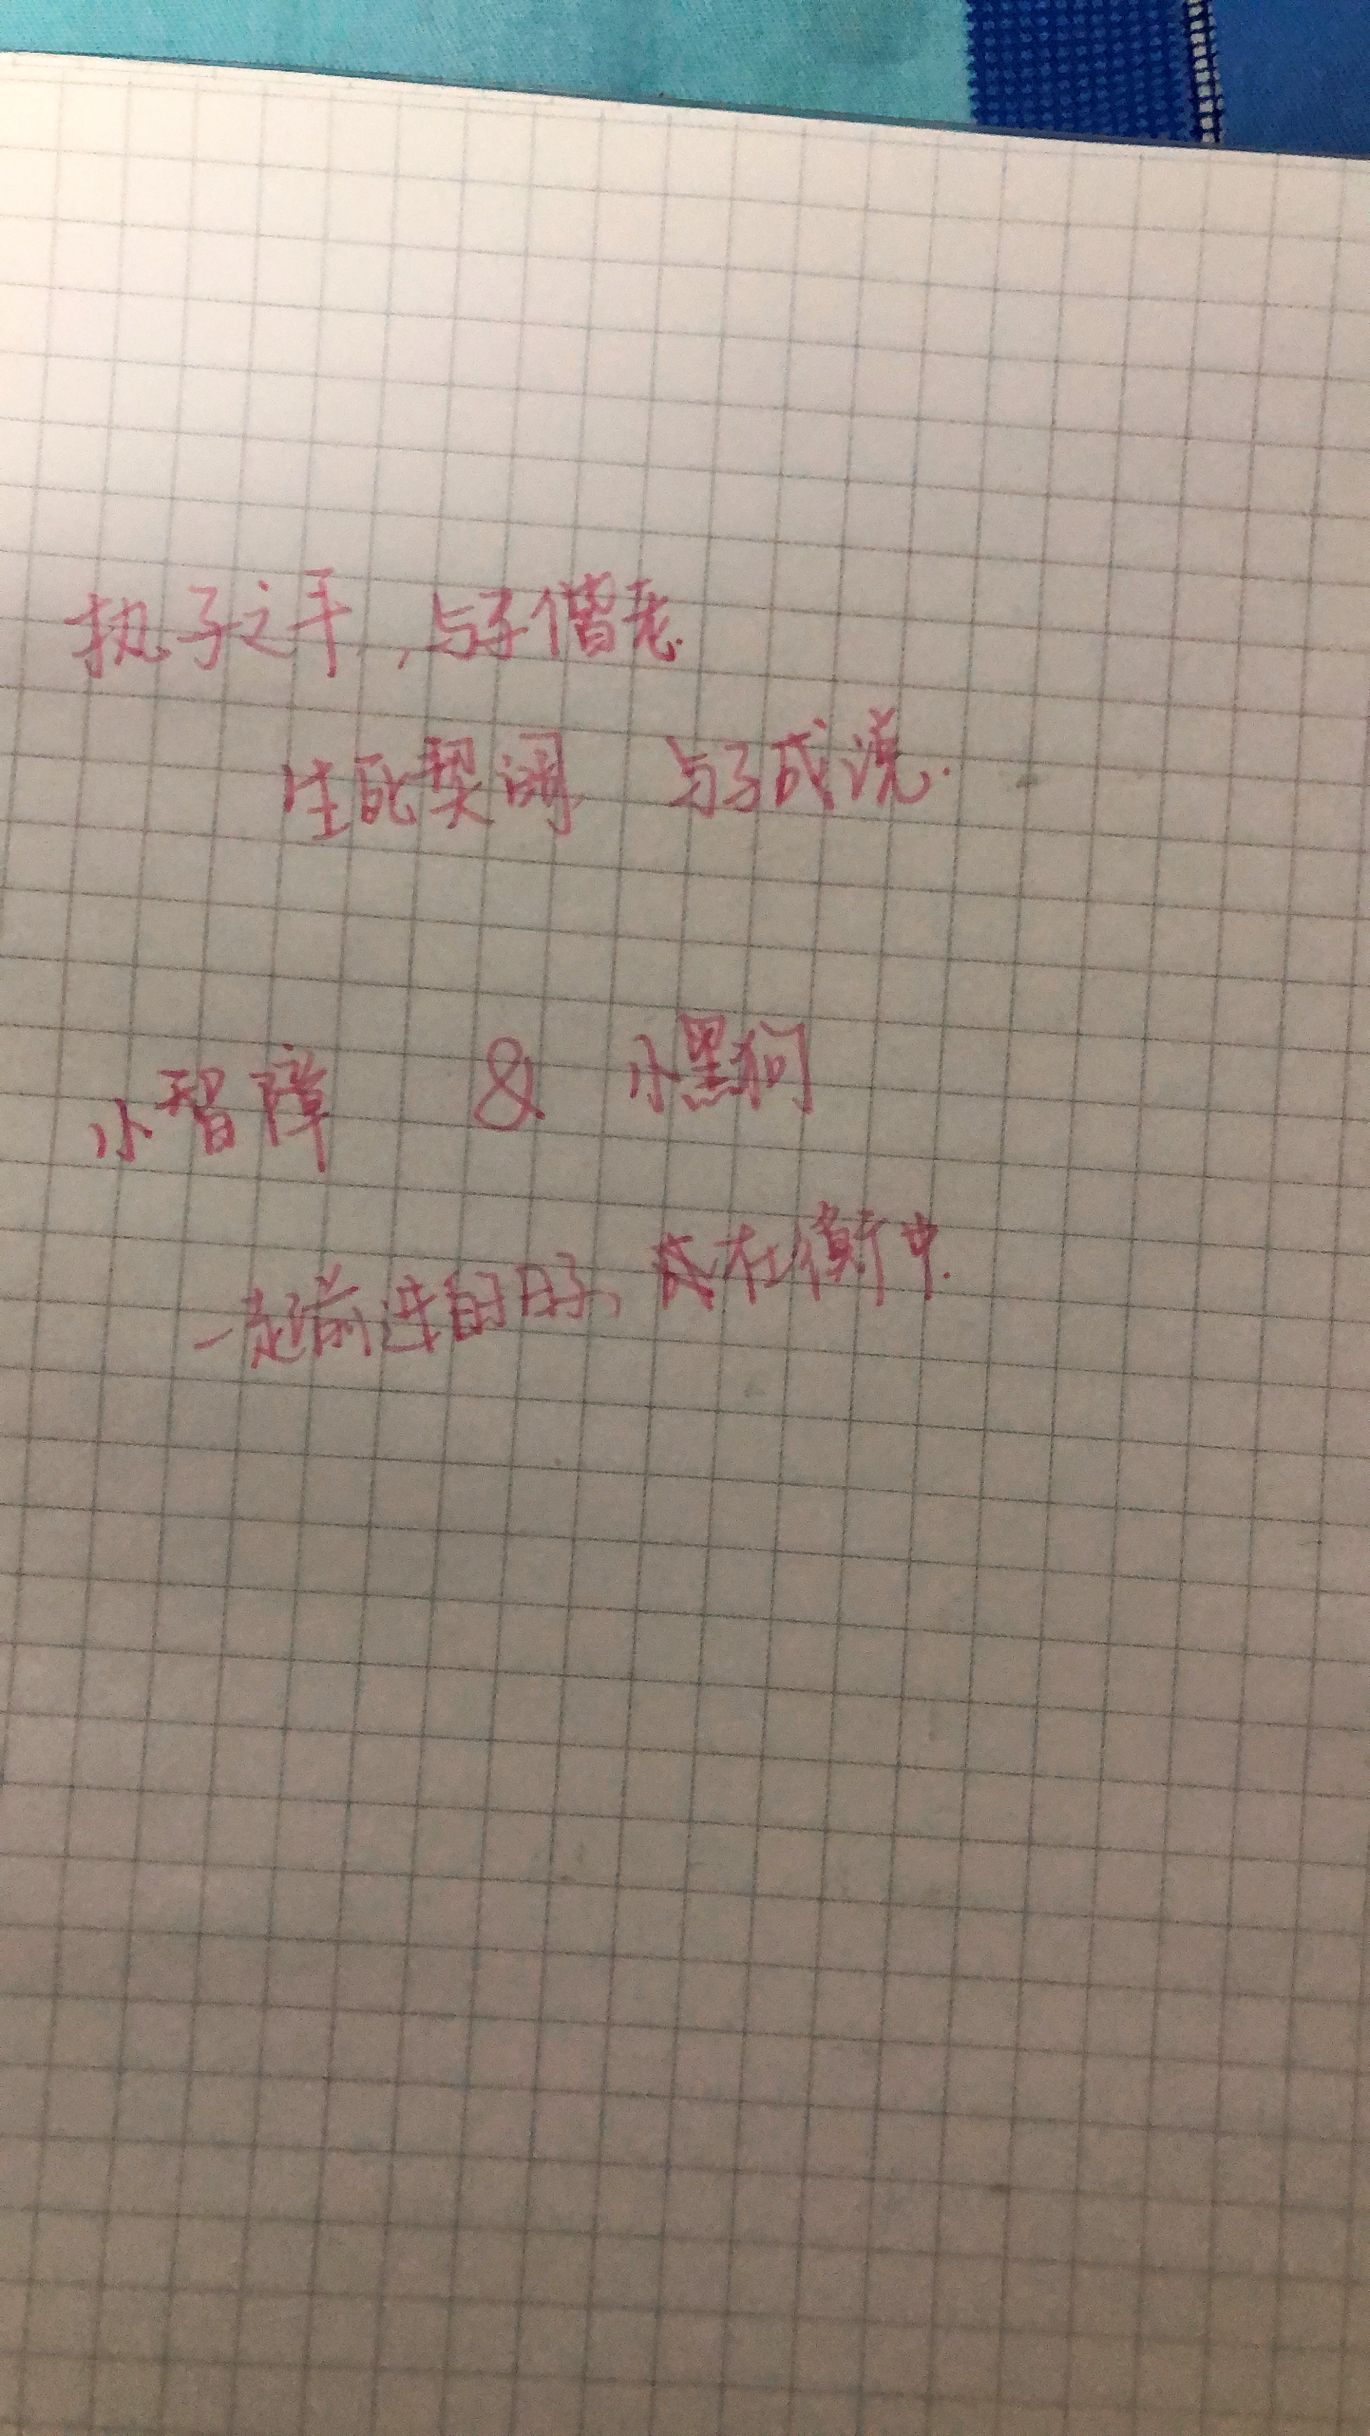 执子之手，与子偕老.
生死契阔 与子成说.
小智障 & 小黑狗
一起前进的日子、在衡中.